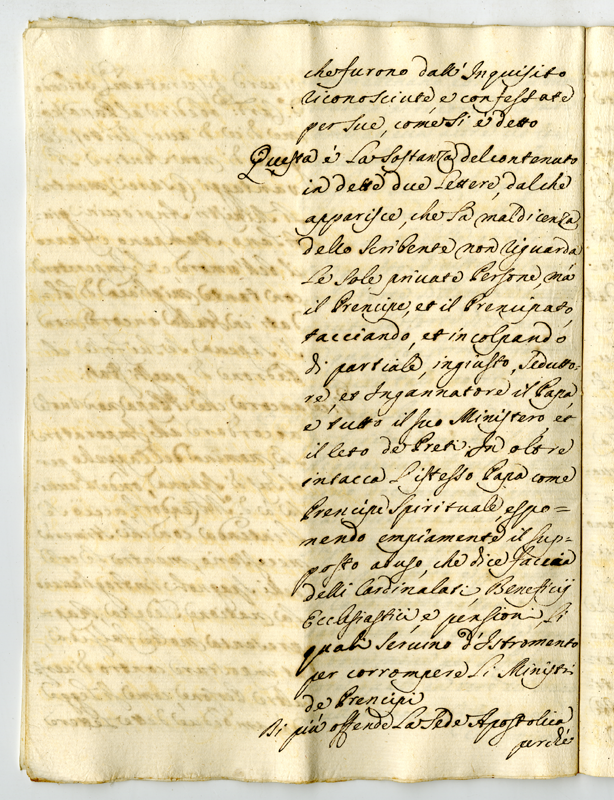 che furono dall' Inquisito
riconosciute, e confessate
per sue, come si è detto
Questa è La Sostanza del contenuto
in dette due Lettere, dal che
apparisce, che la maldicenza
dello Scribente non riguarda
Le Sole private Persone, mà
il Prencipe, et il Prencipato,
tacciando, et incolpando
di partiale, ingiusto, Sedutto=
re, et Ingannatore il Papa,
e tutto il suo Ministero, et
il Ceto de Preti. In oltre
intacca L'istesso Papa come
Prencipe Spirituale, espo=
nendo empiamente il sup=
posto abuso, che dice faccia
delli Cardinalati, Beneficij
Ecclesiastici, e pensioni, Li
quali Servino d'Istromento
per corrompere Li Ministri
de Prencipi
Di più offende La Sede Apostolica
perche